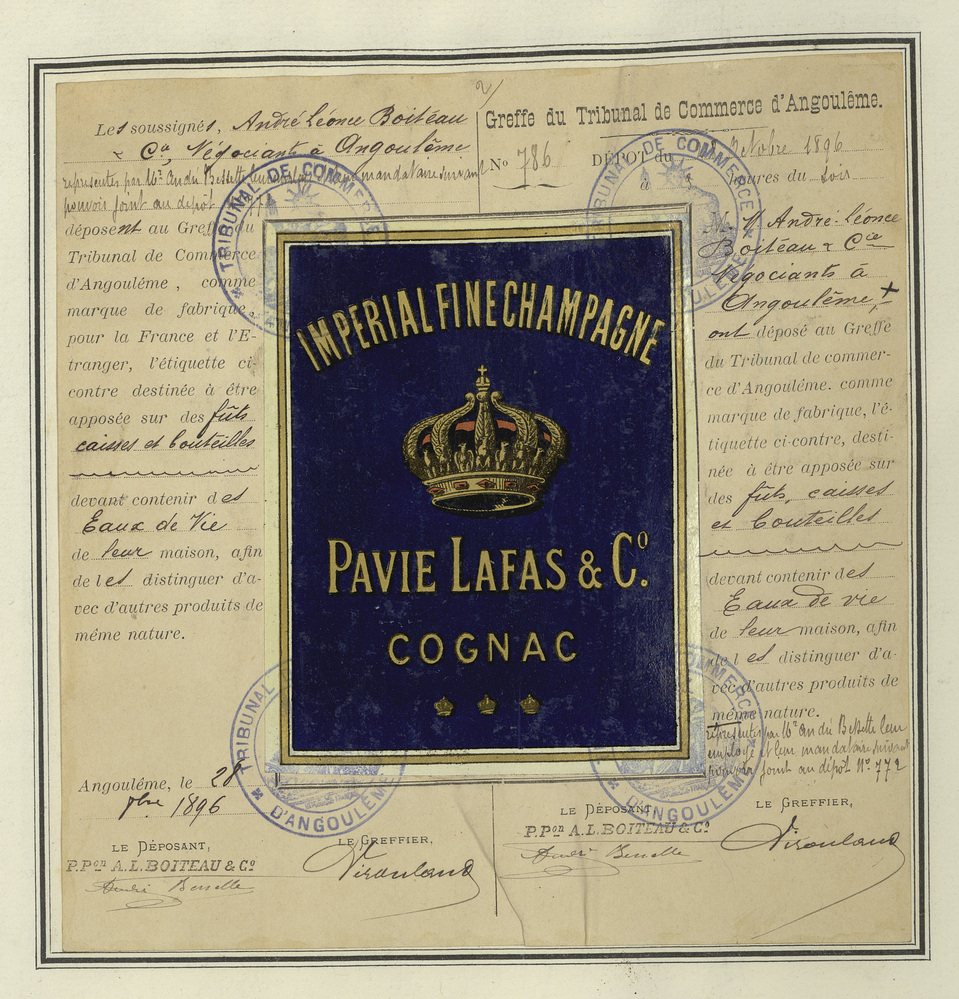 2/
Les soussignés, André Léonce Boiteau
& Cie, Négociants à Angoulême
représentés par Mr André Bessette leur mandataire suivant
pouvoir joint au dépôt
déposent au Greffe du
Tribunal de Commerce
d'Angoulême, comme
marque de fabrique,
pour la France et l'E-
tranger, l'étiquette ci-
contre destinée à être
apposée sur des fûts
caisses et bouteilles
devant contenir des
Eaux de Vie
de leur maison, afin
de les distinguer d'a-
vec d'autres produits de
même nature.
Angoulême, le 28
9bre 1896
LE DÉPOSANT,
P.Pon A.L. BOITEAU & Co
LE GREFFIER,
IMPERIAL FINE CHAMPAGNE
PAVIE LAFAS & Co.
COGNAC
Greffe du Tribunal de Commerce d'Angoulême.
No 786 DÉPÔT du Octobre 1896
à heures du soir
M. M André-Léonce
Boiteau & Cie
Négociants à
Angoulême, +
ont déposé au Greffe
du Tribunal de commer-
ce d'Angoulême. comme
marque de fabrique, l'é-
tiquette ci-contre, desti-
née à être apposée sur
des fûts, caisses
et bouteilles
devant contenir des
Eaux de vie
de leur maison, afin
de les distinguer d'a-
vec d'autres produits de
même nature.
représentés par Mr André Bessette leur
employé et leur mandataire suivant
pouvoir joint au dépôt No 772
LE DÉPOSANT,
P.Pon A.L. BOITEAU & Co
LE GREFFIER,
TRIBUNAL DE COMMERCE
D'ANGOULÊME